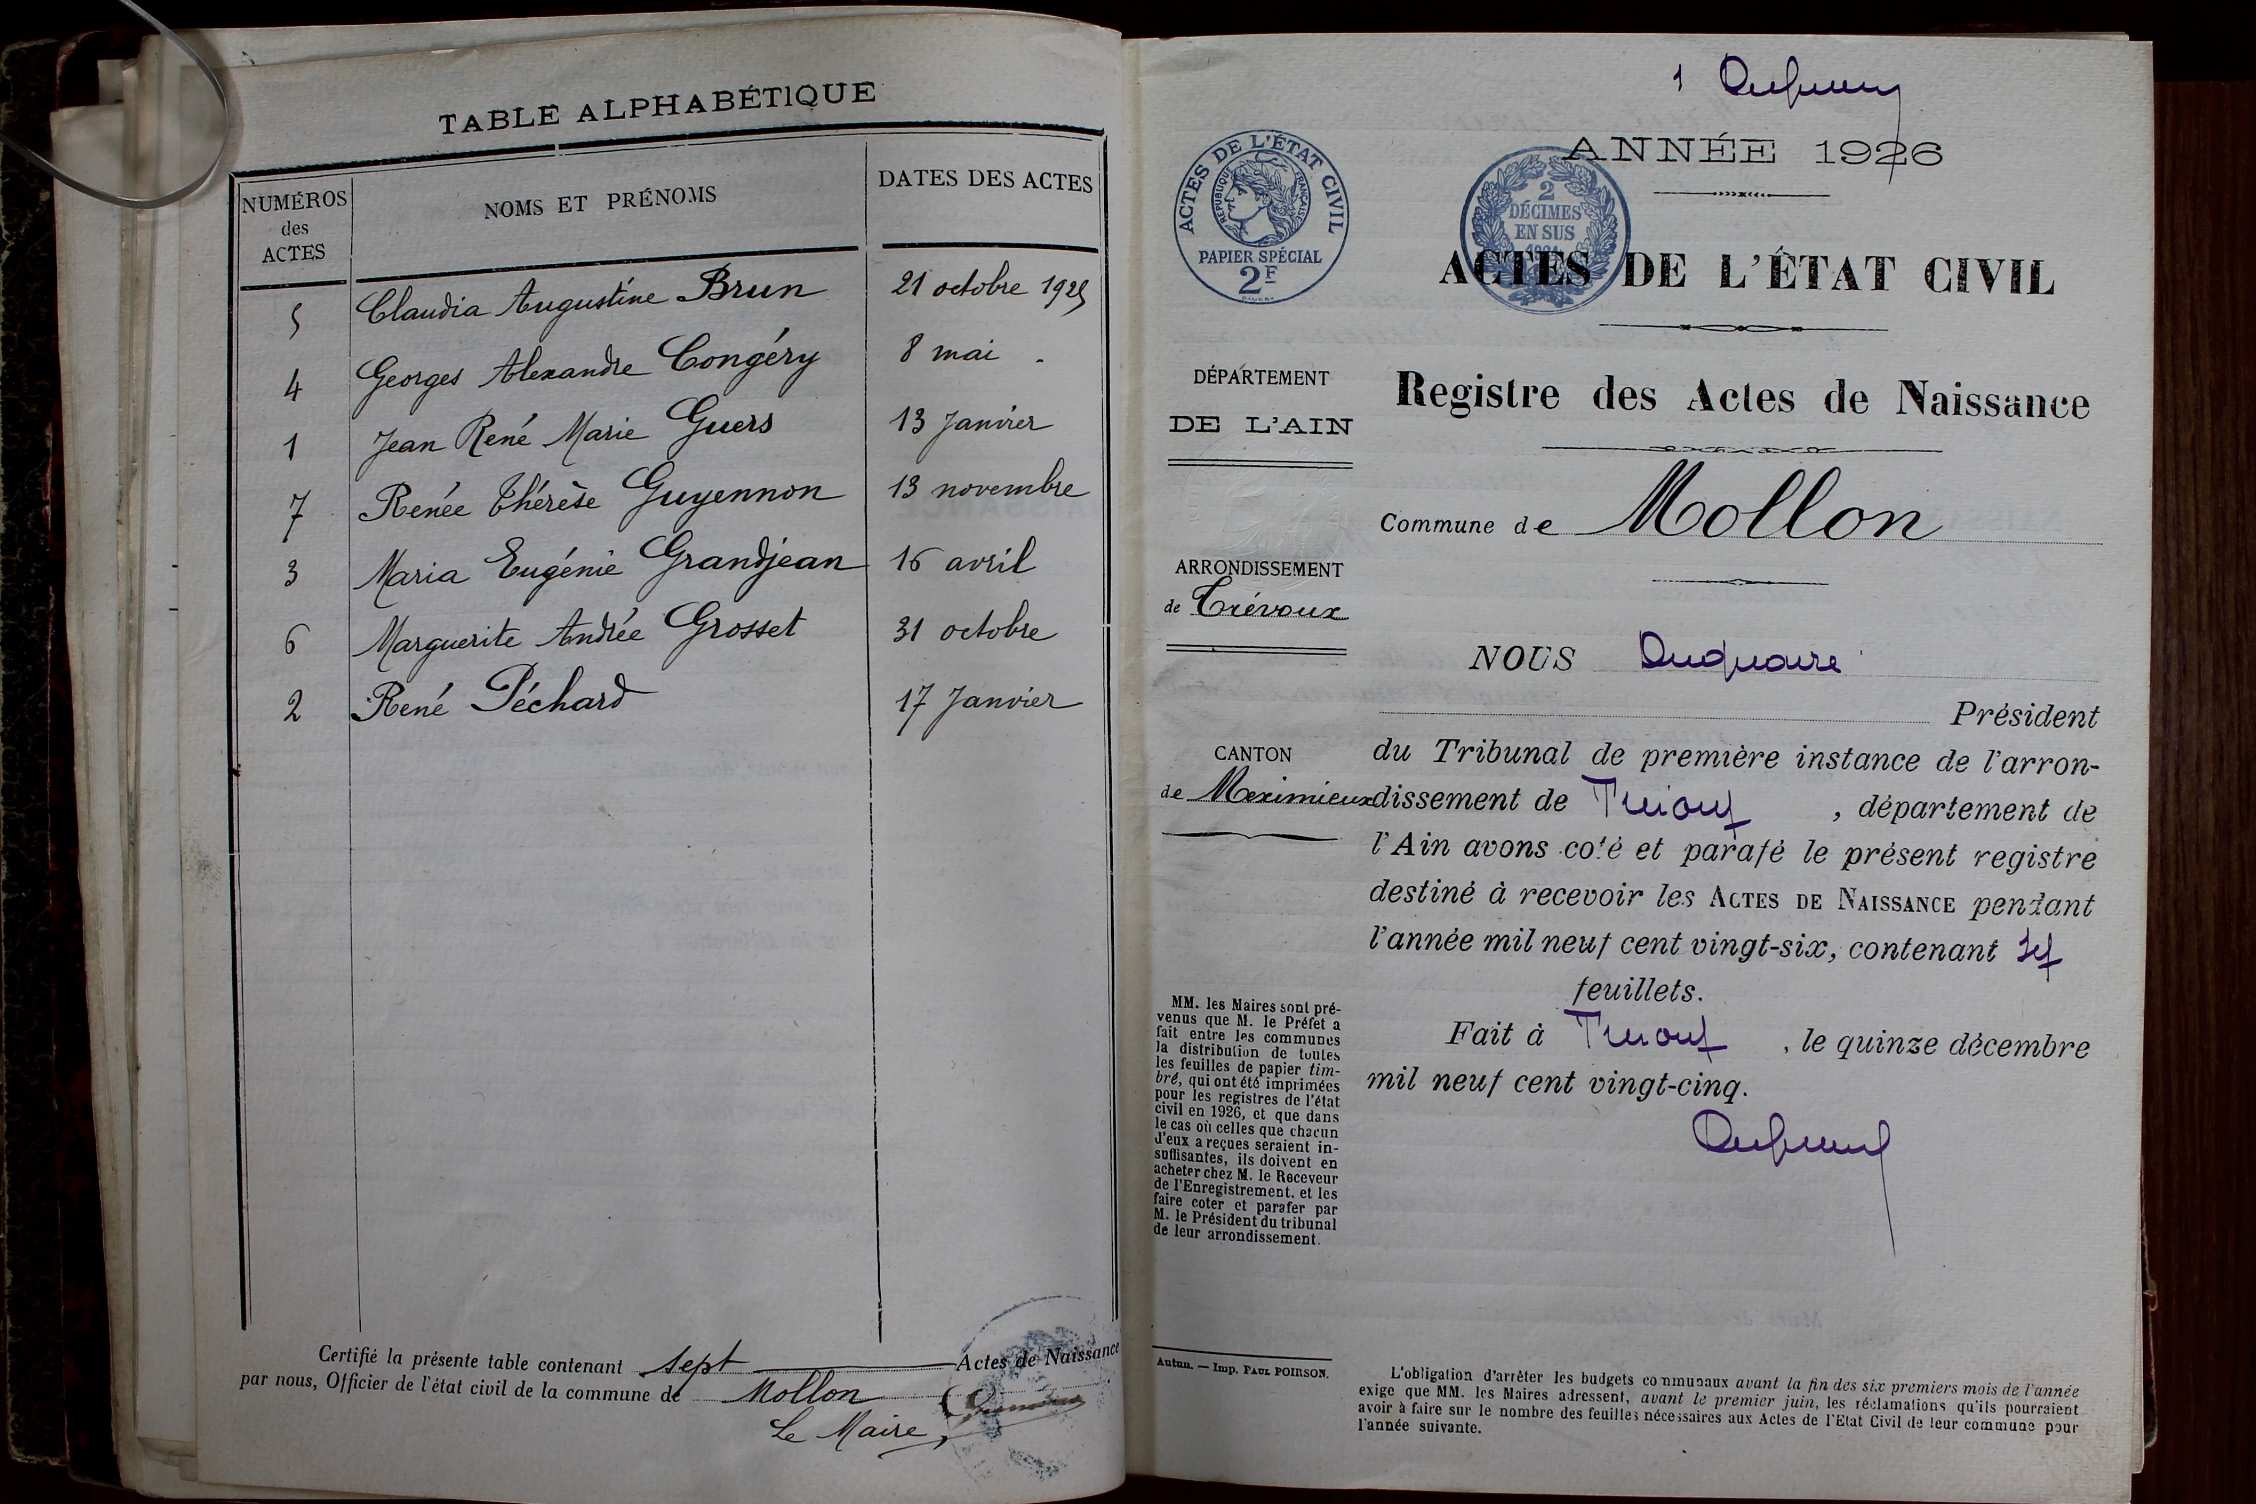 TABLE ALPHABÉTIQUE
NUMÉROS des ACTES NOMS ET PRÉNOMS DATES DES ACTES
5 Claudia Augustine Brun 21 octobre 1925
4 Georges Alexandre Congéry 8 mai
1 Jean René Marie Guers 13 Janvier
7 Renée Thérèse Guyennon 13 novembre
3 Maria Eugénie Grandjean 16 avril
6 Marguerite Andrée Grosset 31 octobre
2 René Péchard 17 Janvier
Certifié la présente table contenant sept Actes de Naissance
par nous, Officier de l'état civil de la commune de Mollon
Le Maire,
1
ANNÉE 1926
ACTES DE L'ÉTAT CIVIL
RÉPUBLIQUE FRANÇAISE
PAPIER SPÉCIAL
2F
2
DÉCIMES
EN SUS
ACTES DE L'ÉTAT CIVIL
Registre des Actes de Naissance
DÉPARTEMENT
DE L'AIN
Commune de Mollon
ARRONDISSEMENT
de Trévoux
CANTON
de Meximieux
NOUS Duquaire
Président
du Tribunal de première instance de l'arron-
dissement de Trévoux, département de
l'Ain avons coté et parafé le présent registre
destiné à recevoir les ACTES DE NAISSANCE pendant
l'année mil neuf cent vingt-six, contenant
feuillets.
Fait à Trévoux, le quinze décembre
mil neuf cent vingt-cinq.
MM. les Maires sont pré-
venus que M. le Préfet a
fait entre les communes
la distribution de toutes
les feuilles de papier tim-
bré, qui ont été imprimées
pour les registres de l'état
civil en 1926, et que dans
le cas où celles que chacun
d'eux a reçues seraient in-
suffisantes, ils doivent en
acheter chez M. le Receveur
de l'Enregistrement, et les
faire coter et parafer par
M. le Président du tribunal
de leur arrondissement.
Autun. — Imp. PAUL POIRSON.
L'obligation d'arrêter les budgets communaux avant la fin des six premiers mois de l'année
exige que MM. les Maires adressent, avant le premier juin, les réclamations qu'ils pourraient
avoir à faire sur le nombre des feuilles nécessaires aux Actes de l'Etat Civil de leur commune pour
l'année suivante.